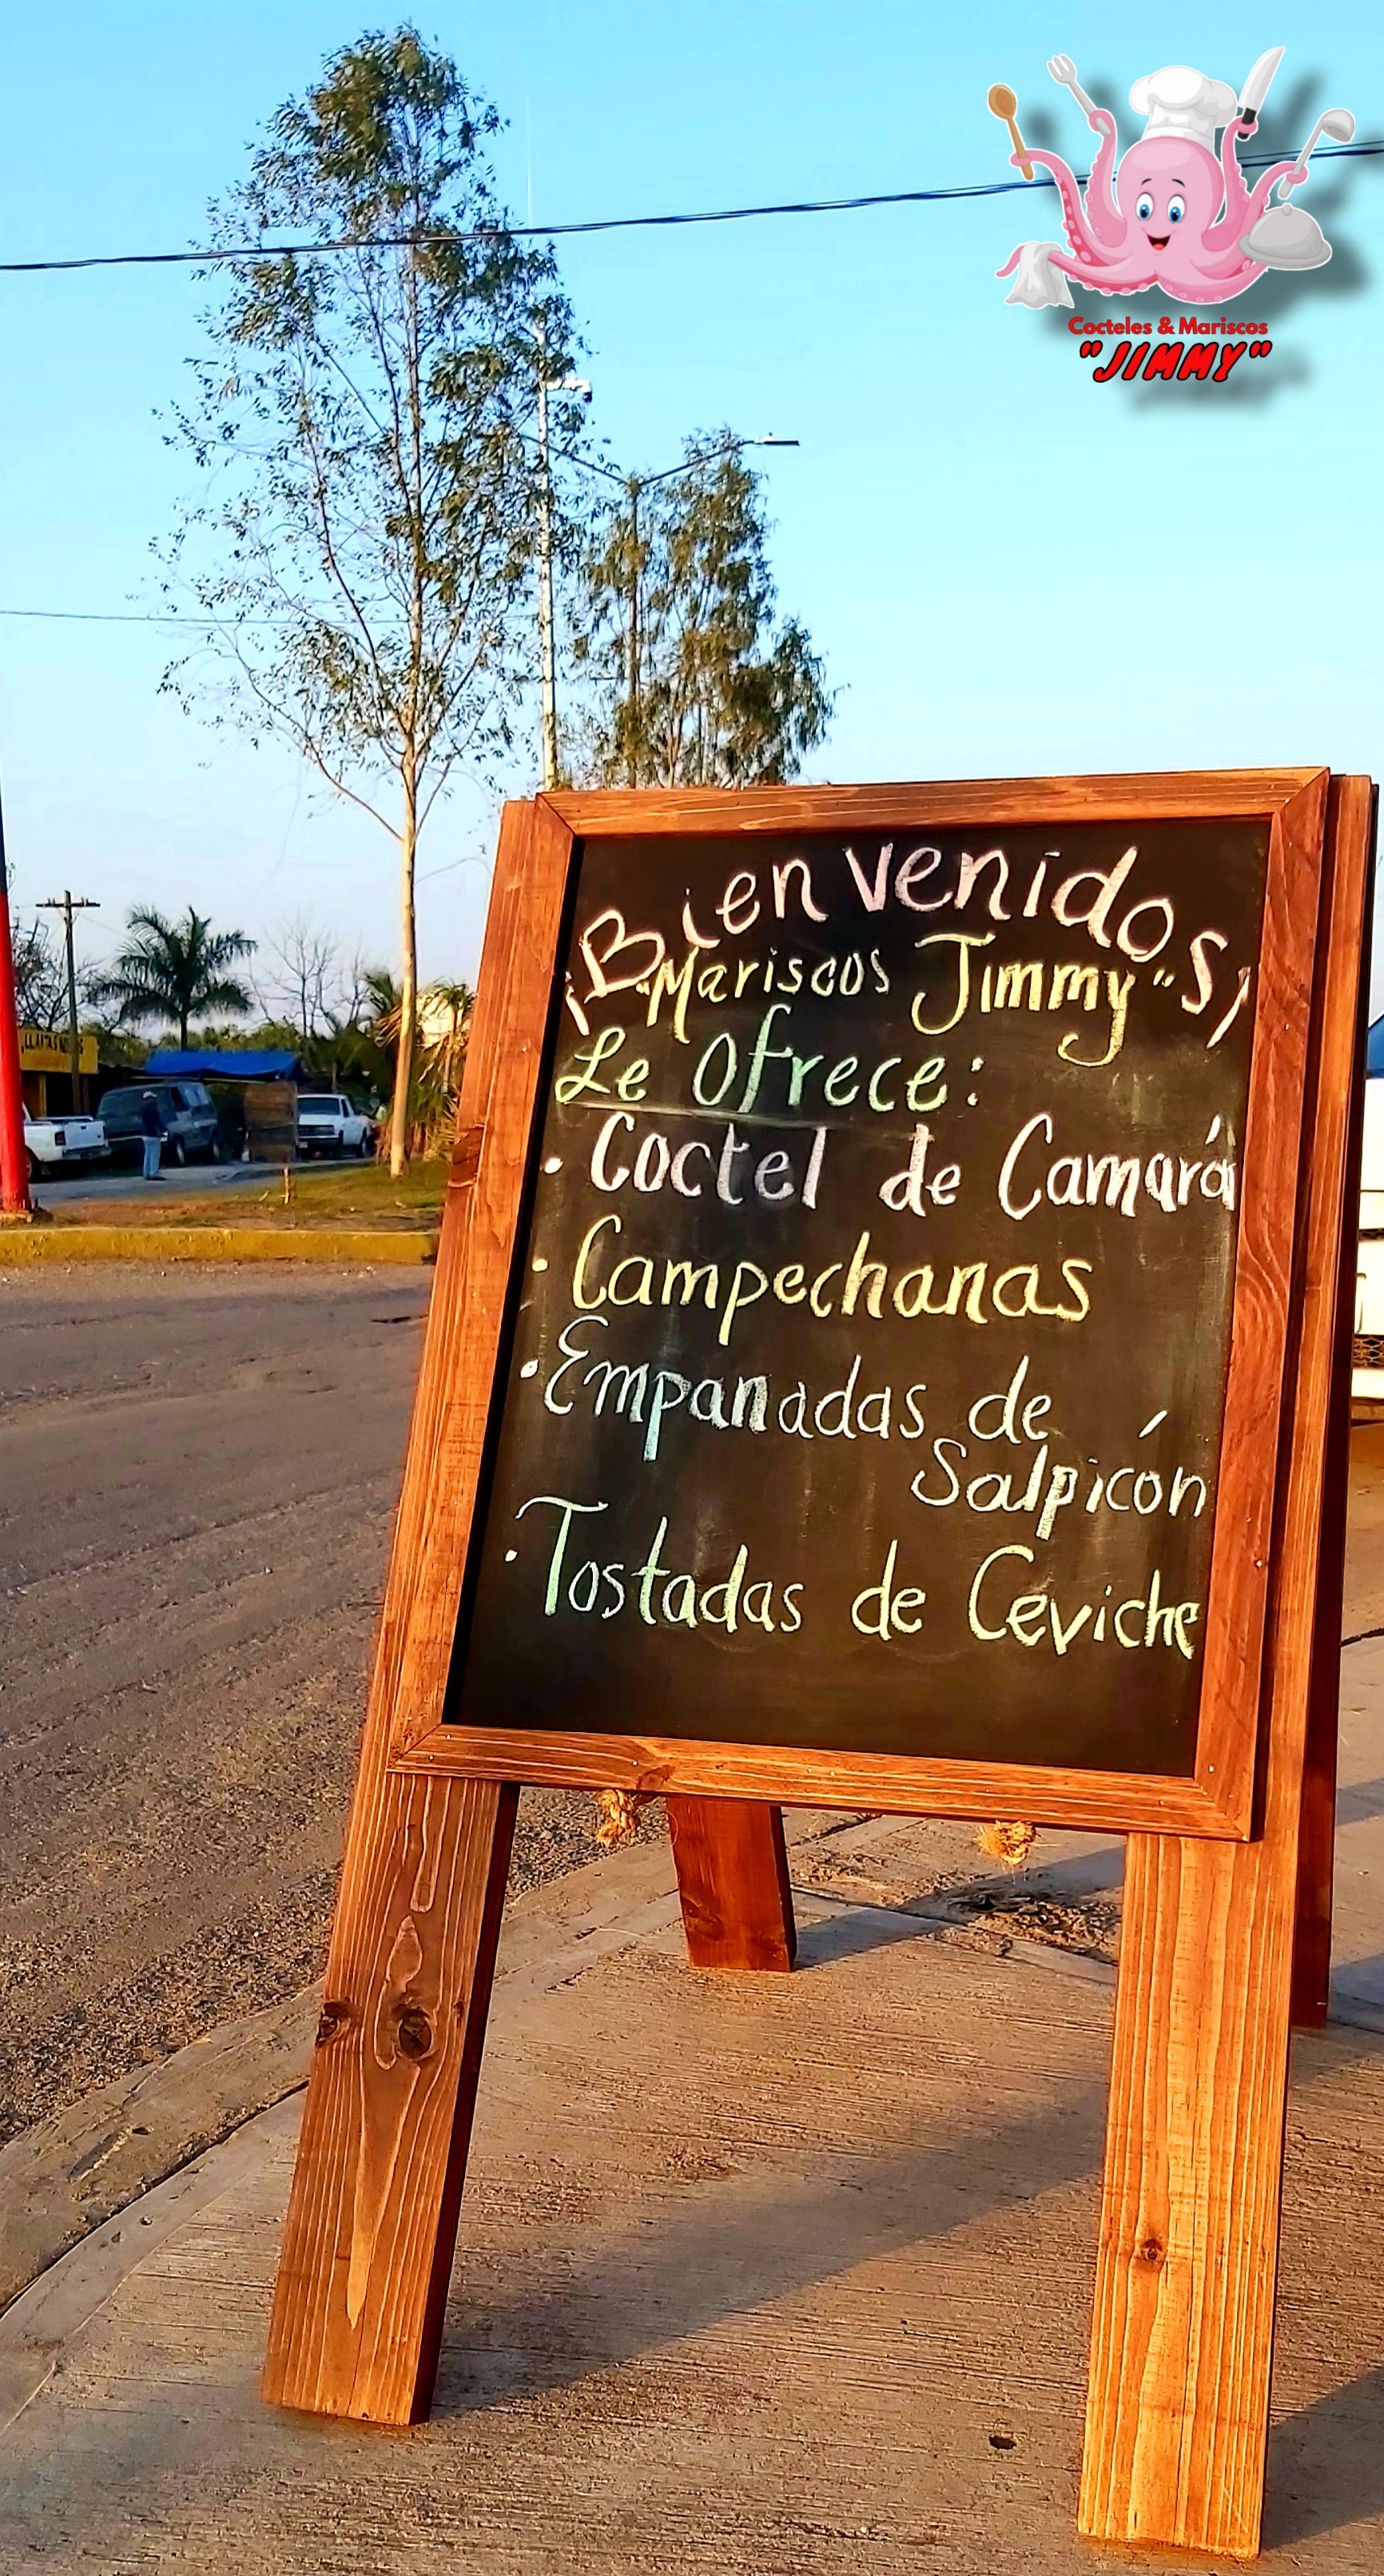 Cocteles & Mariscos
"JIMMY"
¡Bienvenidos!
"Mariscos Jimmy"
Le Ofrece:
· Coctel de Camará
· Campechanas
· Empanadas de
Salpicón
· Tostadas de Ceviche